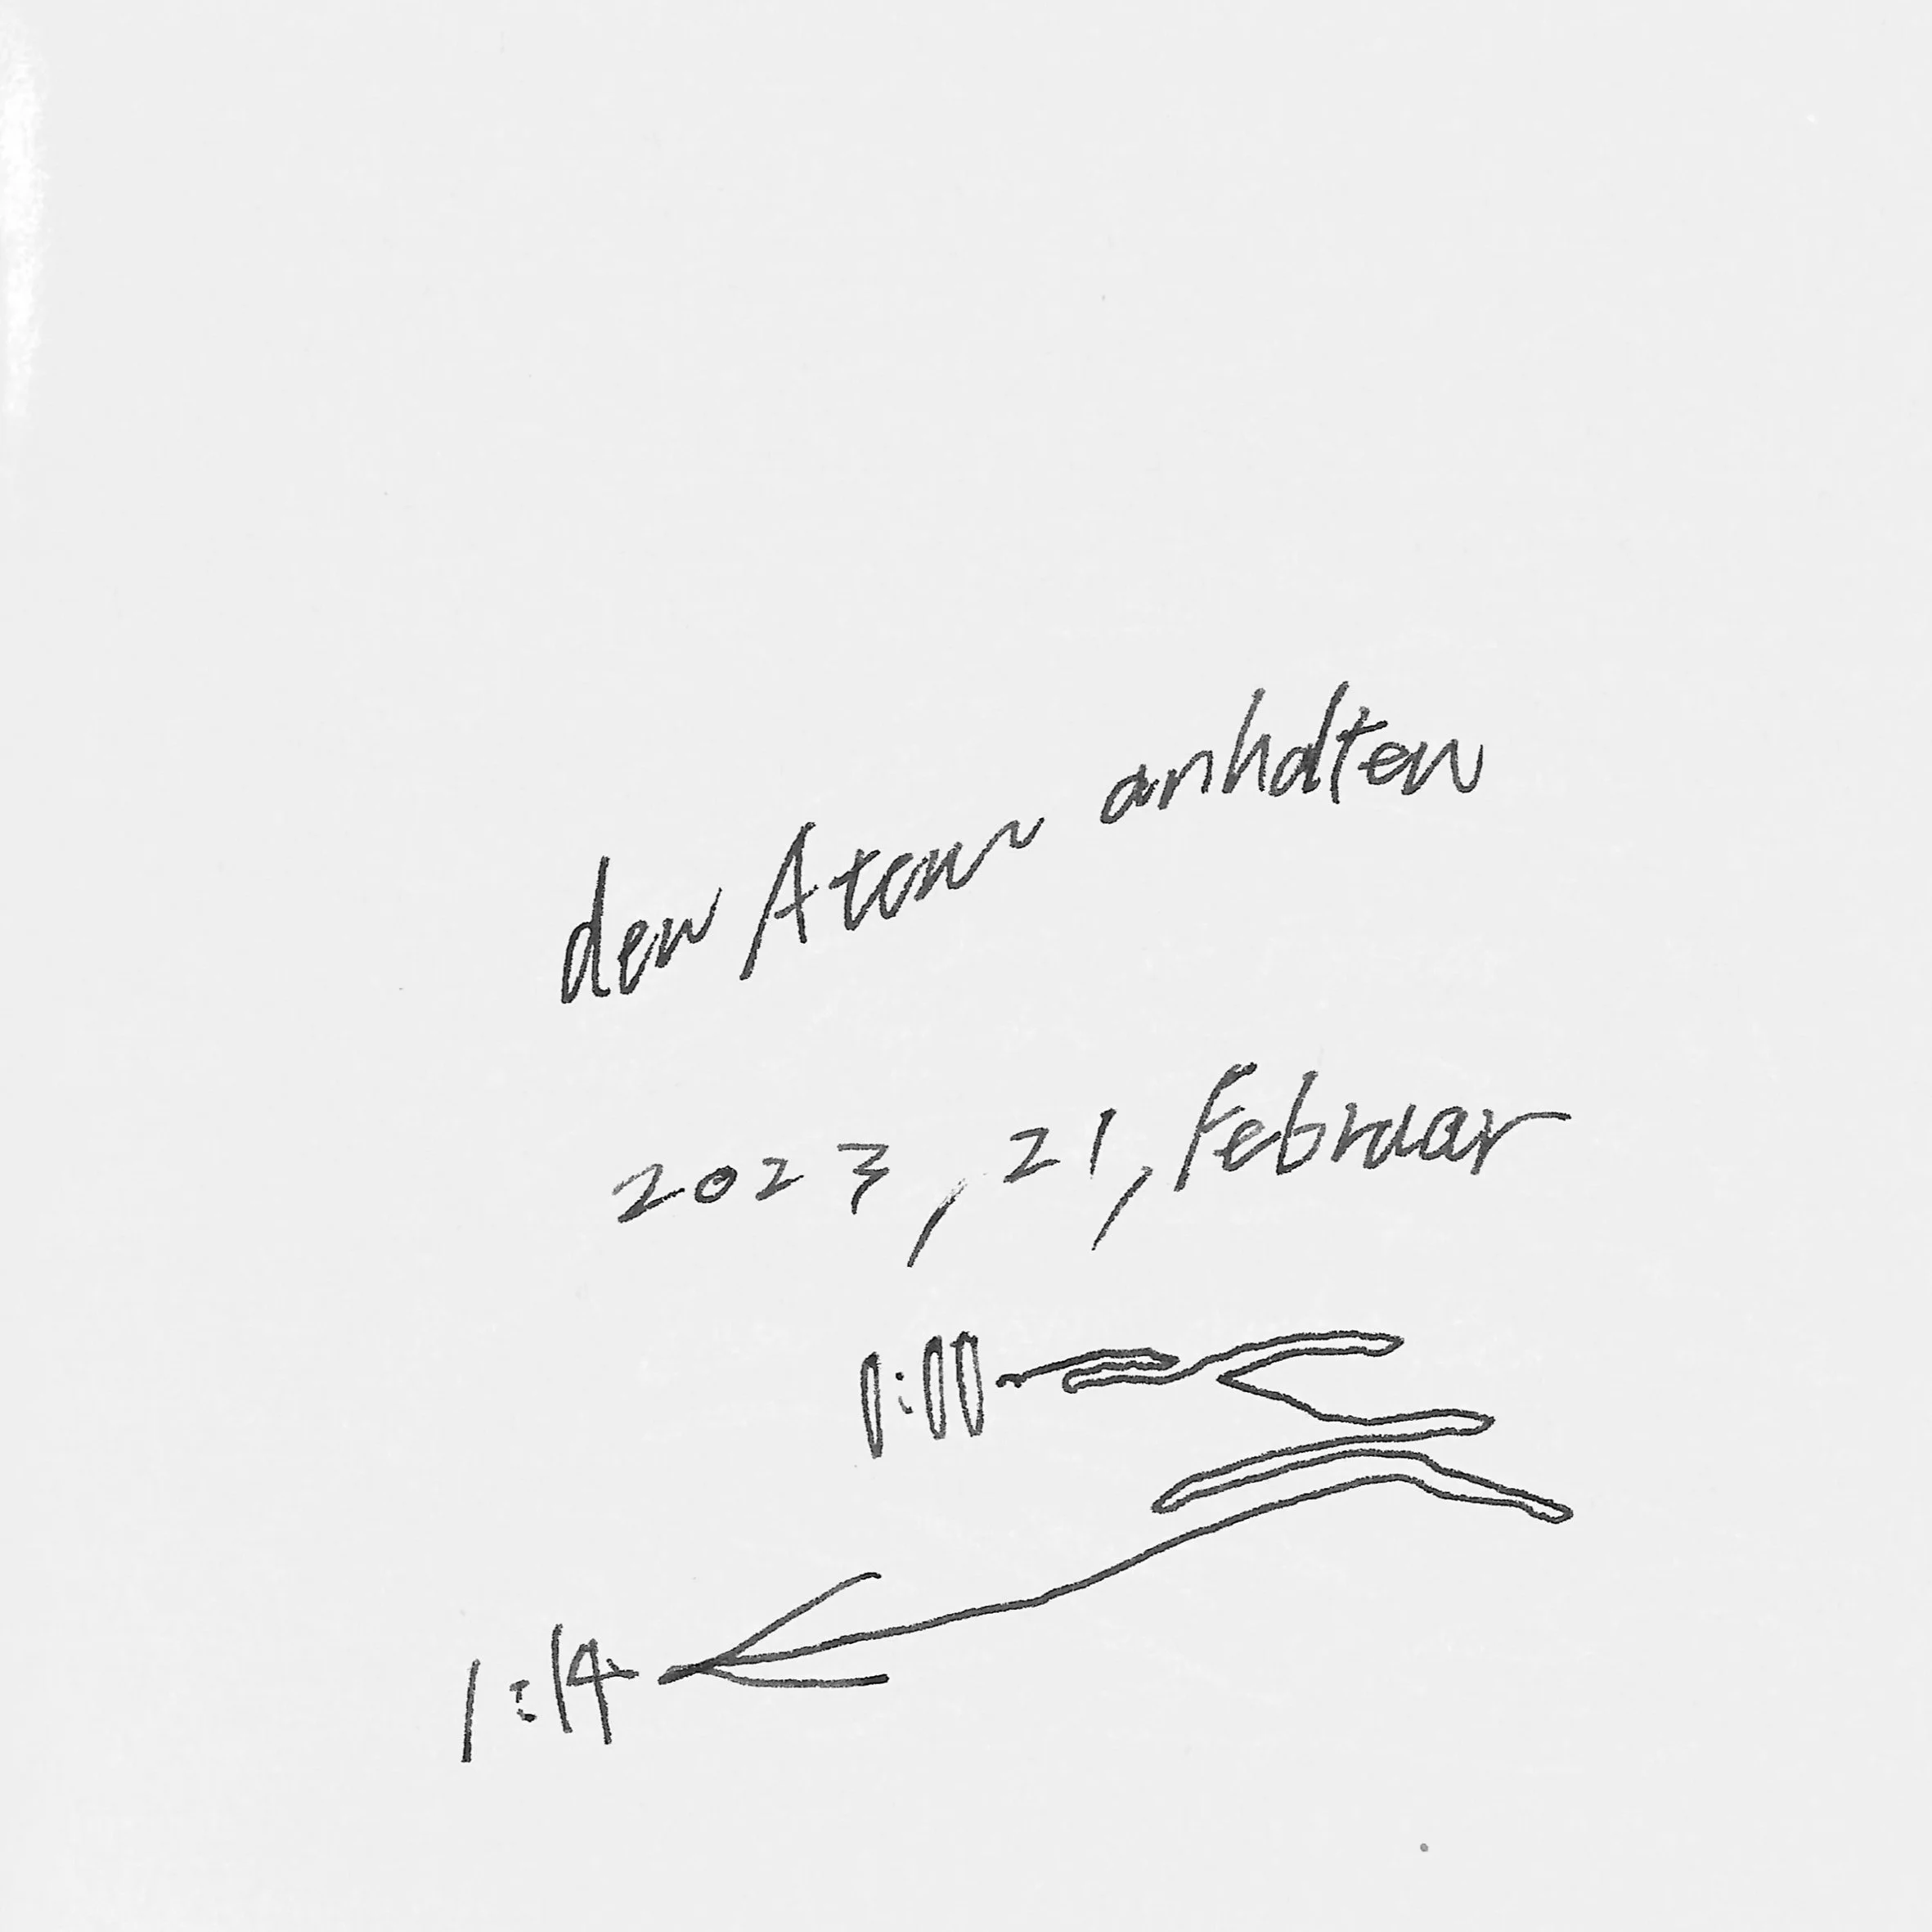 den Atem anhalten
2023, 21, Februar
0:00
1:14